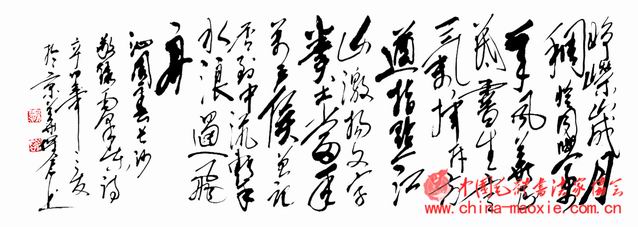 峥嵘岁月
稠恰同学少
年风华正
茂书生意
气挥斥方
遒指点江
山激扬文字
粪土当年
万户侯曾记
否到中流击
水浪遏飞
舟
沁园春长沙
敬录
辛卯年
於京
中国毛体书法家协会
www.china-maoxie.com.cn